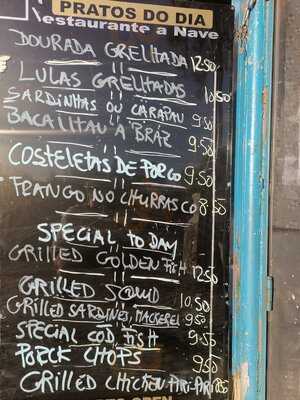 PRATOS DO DIA
Restaurante a Nave
DOURADA GRELHADA 12.50
LULAS GRELHADAS 10.50
SARDINHAS OU CARAPAU 9.50
BACALHAU A BRÁZ 9.50
COSTELETAS DE PORCO 9.50
FRANGO NO CHURRASCO 8.50
SPECIAL TO DAY
GRILLED GOLDEN FISH 12.50
GRILLED SQUID 10.50
GRILLED SARDINES, MACKEREL 9.50
SPECIAL COD FISH 9.50
PORCK CHOPS 9.50
GRILLED CHICKEN PIRI-PIRI 8.50
OPEN